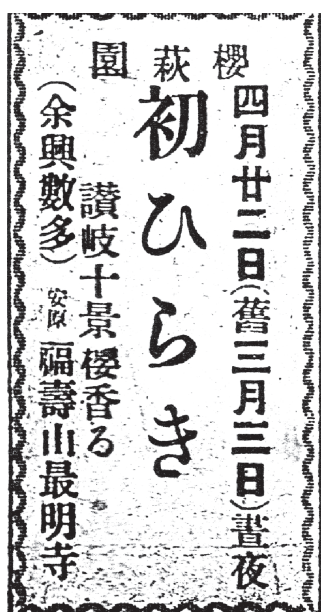 櫻萩園
四月廿二日(舊三月三日)晝夜
初ひらき
讃岐十景櫻香る
(余興數多)安原福壽山最明寺